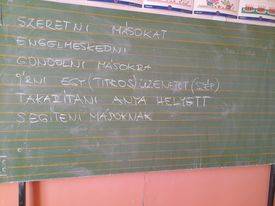 SZERETNI MÁSOKAT
ENGELMESKEDNI
GONDOLNI MÁSOKRA
ÍRNI EGY (TITKOS) ÜZENETET (SZÉP)
TAKARÍTANI ANYA HELYETT
SEGÍTENI MÁSOKNAK